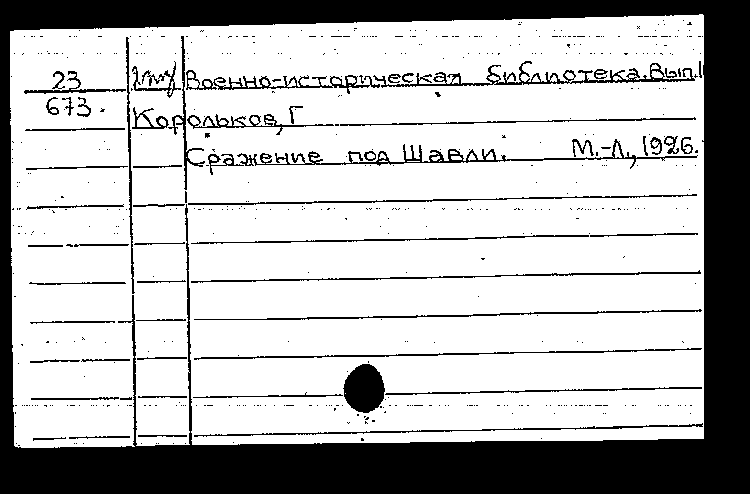 23 Военно-историческая библиотека. Вып.
673. Корольков, Г
Сражение под Шавли. М.-Л., 1926.